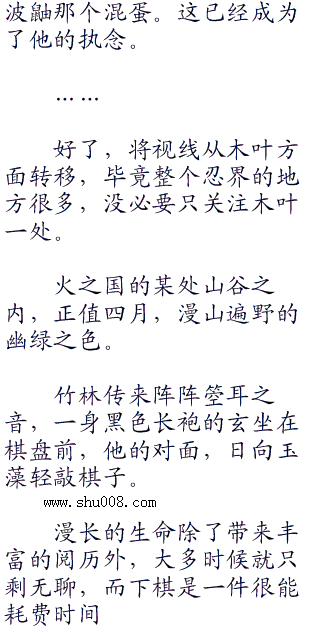 波鼬那个混蛋。这已经成为
了他的执念。
……
好了，将视线从木叶方
面转移，毕竟整个忍界的地
方很多，没必要只关注木叶
一处。
火之国的某处山谷之
内，正值四月，漫山遍野的
幽绿之色。
竹林传来阵阵箜耳之
音，一身黑色长袍的玄坐在
棋盘前，他的对面，日向玉
藻轻敲棋子。
www.shu008.com
漫长的生命除了带来丰
富的阅历外，大多时候就只
剩无聊，而下棋是一件很能
耗费时间